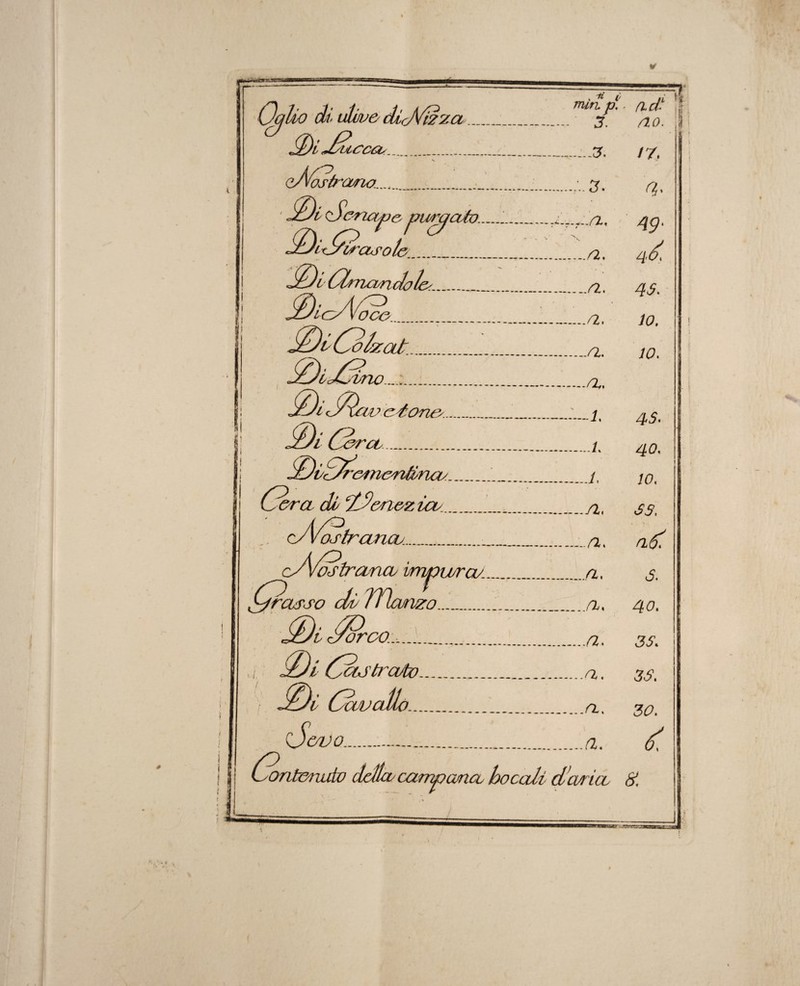 min. p.i n.di
Oglio di ulive di Nizza 3. 20.
Di Lucca 3. 17.
Nostrano 3. 2.
Di Senape purgato 2. 49.
Di Girasole 2. 46.
Di Amandole 2. 45.
Di Noce 2. 10.
Di Colzat 2. 10.
Di Lino 2.
Di Ravetone 1. 45.
Di Cera 1. 40.
Di Trementina 1. 10.
Cera di Venezia 2. 55.
Nostrana 2. 26.
Nostrana impura 2. 5.
Grasso di Manzo 2. 40.
Di Porco 2. 35.
Di Castrato 2. 35.
Di Cavallo 2. 30.
Sevo 2. 6.
Contenuto della campana bocali d'aria 8.